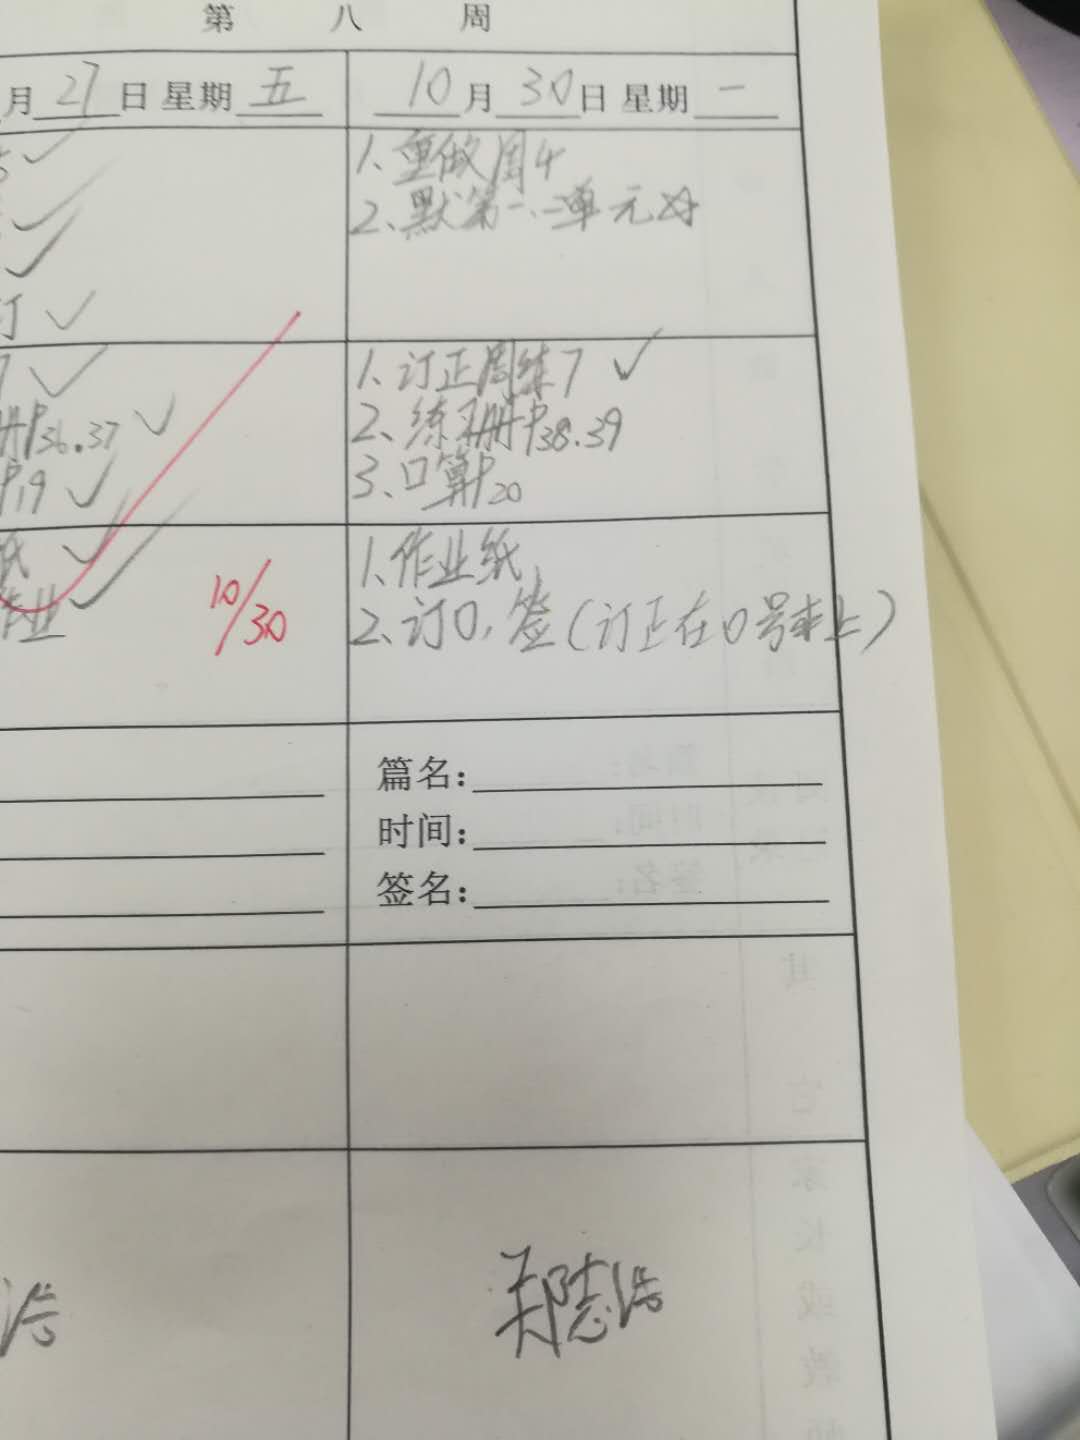 第 八 周
月 27 日 星期 五
10 月 30 日 星期 一
1、重做周4
2、默第一、二单元
订
1、订正周练7
2、练习册P38.39
3、口算P20
册P36.37
P19
纸
作业
10/30
1、作业纸
2、订0,签(订正在0号本上)
篇名:
时间:
签名:
郑志浩
浩